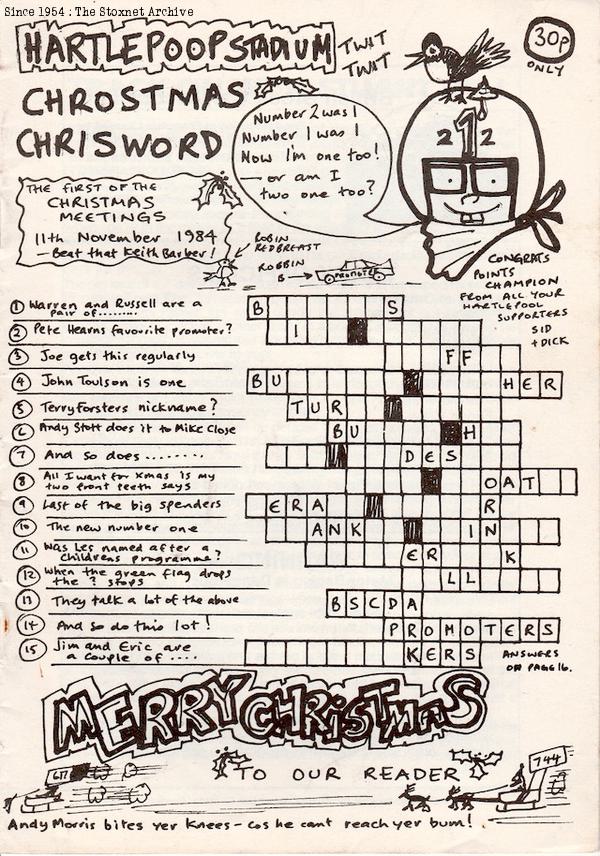 Since 1954 : The Stoxnet Archive
HARTLEPOOP STADIUM
TWIT
TWIT
30p
ONLY
CHROSTMAS
CHRISWORD
Number 2 was 1
Number 1 was 1
Now I'm one too!
— or am I
two one too?
2 1 2
THE FIRST OF THE
CHRISTMAS
MEETINGS
11th November 1984
— Beat that Keith Barber!
ROBIN
REDBREAST
ROBBIN
B
PROMOTER
CONGRATS
POINTS
CHAMPION
FROM ALL YOUR
HARTLEPOOL
SUPPORTERS
SID
+ DICK
1 Warren and Russell are a
pair of.........
B S
2 Pete Hearns favourite promoter?
I
3 Joe gets this regularly
FF
4 John Toulson is one
BU HER
5 Terry Forsters nickname?
TUR
6 Andy Stott does it to Mike Close
BU H
7 And so does ........
DES
8 All I want for Xmas is my
two front teeth says
OAT
9 Last of the big spenders
ERA R
10 The new number one
ANK IN
11 Was Les named after a
childrens programme?
ER K
12 When the green flag drops
the ? stops
LL
13 They talk a lot of the above
BSCDA
14 And so do this lot!
PROMOTERS
15 Jim and Eric are
a couple of ....
KERS
ANSWERS
ON PAGE 16.
MERRY CHRISTMAS
617
744
TO OUR READER
Andy Morris bites yer knees - cos he cant reach yer bum!